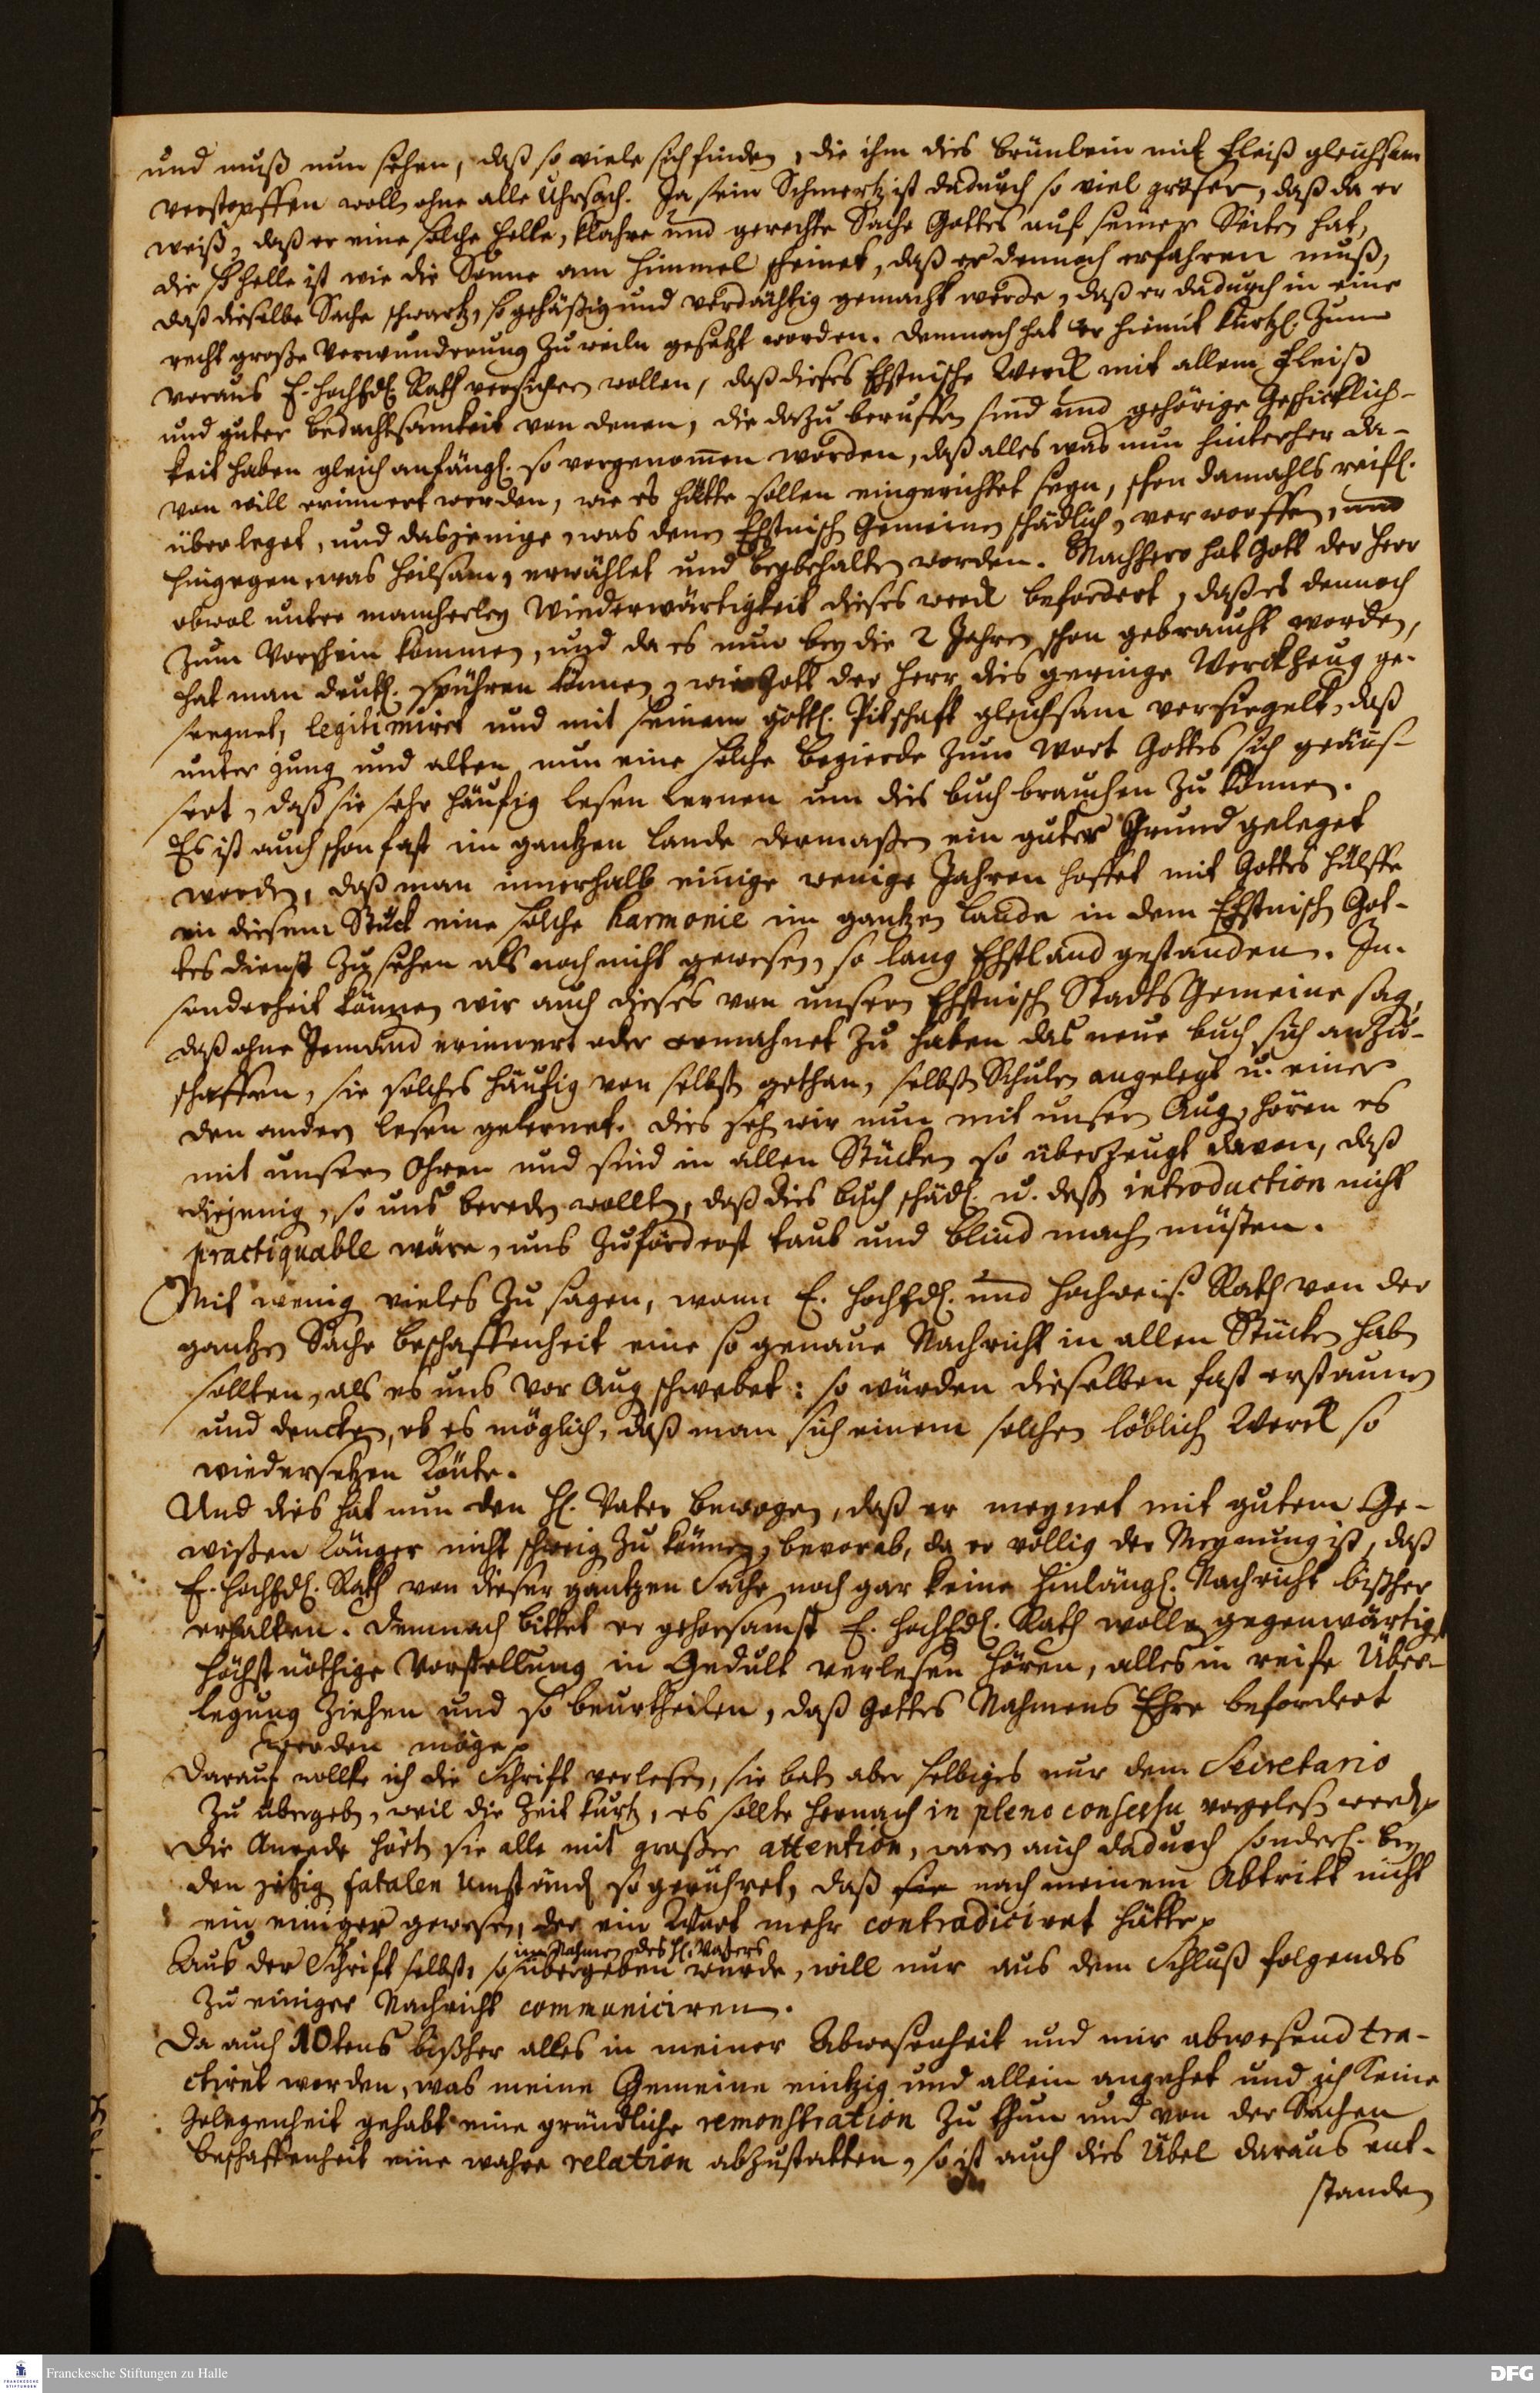 und muß nun sehen, daß so viele sich finden, die ihm dies brünlein mit Fleiß gleichsam
verstopffen wolln ohne alle Uhrsach. Ja sein Schmertz ist dadurch so viel größer, daß da er
weiß, daß er eine solche helle, klahre und gerechte Sache Gottes auf seiner Seiten hat,
die so helle ist wie die Sonne am Himmel scheinet, daß er dennoch erfahren muß,
daß dieselbe Sache schwartz, so gehäßig und verdächtig gemacht werde, daß er dadurch in eine
recht große Verwunderung zu weiln gesetzt worden. Demnach hat er hiemit kürtzl. zum
voraus E. HochEdl. Rath versichern wollen, daß dieses Ehstnische Werck mit allem Fleiß
und guter bedachtsamkeit von denen, die dazu beruffen sind und gehörige Geschicklich-
keit haben gleich anfängl. so vorgenommen worden, daß alles was nun hinterher da-
von will erinnert werden, wie es hätte sollen eingerichtet seyn, schon damahls reifl.
überleget, und dasjenige, was denen Ehstnisch Gemeinen schädlich, verworffen, und
hingegen, was heilsam, erwählet und beybehalten worden. Nachhero hat Gott der Herr
obwol unter mancherley Wiederwärtigkeit dieses werck befordert, daß es dennoch
zum Vorschein kommen, und da es nun bey die 2 Jahren schon gebraucht worden,
hat man deutl. spühren können, wie Gott der Herr dies geringe Werckzeug ge-
seegnet, legitimiret und mit seinem göttl. Pitschaft gleichsam versiegelt, daß
unter jung und alten nun eine solche Begierde zum Wort Gottes sich geäus-
sert, daß sie sehr häufig lesen lernen um dies buch brauchen zu können.
Es ist auch schon fast im gantzen Lande dermaßen ein guter Grund geleget
worden, daß man innerhalb einige wenige Jahren hoffet mit Gottes hülffe
in diesem Stück eine solche harmonie im gantzen Lande in dem Ehstnisch Got-
tes dienst zu sehen als noch nicht gewesen, so lang Ehstland gestanden. In-
sonderheit können wir auch dieses von unsern Ehstnisch Stadts Gemeine sag,
daß ohne Jemand erinnert oder ermahnet zu haben das neue buch sich anzu-
schaffen, sie solches häufig von selbst gethan, selbst Schulen angelegt u. einer
den andern lesen gelernet. Dies seh wir nun mit unsern Aug, hören es
mit unsern Ohren und sind in allen Stücken so überzeugt davon, daß
diejenig, so uns bereden wollt, daß dies buch schädl. u. deßen introduction nicht
practiquable wäre, uns zuförderst taub und blind mach müsten.
Mit wenig vieles zu sagen, wann E. HochEdl. und Hochweis. Rath von der
gantzen Sache beschaffenheit eine so genaue Nachricht in allen Stücken hab
sollten, als es uns vor Aug schwebet: so würden dieselben fast erstaunen
und dencken, ob es möglich, daß man sich einem solchen löblich Werck so
wiedersetzen könte.
Und dies hat nun den H. Vater bewogen, daß er meynet mit gutem Ge-
wißen länger nicht schweig zu können, bevorab, da er völlig der Meynung ist, daß
E. HochEdl. Rath von dieser gantzen Sache noch gar keine hinlängl. Nachricht bißher
erhalten. Demnach bittet er gehorsamst E. HochEdl. Rath wolle gegenwärtige
höchst nöthige Vorstellung in Gedult verlesen hören, alles in reife Über-
legung ziehen und so beurtheilen, daß Gottes Nahmens Ehre befordert
werden möge.
Darauf wollte ich die Schrift verlesen, sie baten aber selbiges nur dem Secretario
zu übergeb, weil die Zeit kurtz, es sollte hernach in pleno consessu vorgeleß werdn
Die Anrede hört sie alle mit großer attention, warn auch dadurch sonderl. bey
den jetzig fatalen Umständ so gerühret, daß nach meinem Abtritt nicht
ein einiger gewesen, der ein Wort mehr contradiciret hätte.
Aus der Schrift selbst, so im Nahmen des H. Vaters übergeben wurde, will nur aus dem Schluß folgendes
zu einiger Nachricht communiciren.
Da auch 10tens bißher alles in meiner Abwesenheit und mir abwesend tra-
ctiret worden, was meine Gemeine eintzig und allein angehet und ich keine
Gelegenheit gehabt eine gründliche remonstration zu thun und von der Sachen
beschaffenheit eine wahre relation abzustatten, so ist auch dies Übel daraus ent-
standen
Franckesche Stiftungen zu Halle
DFG